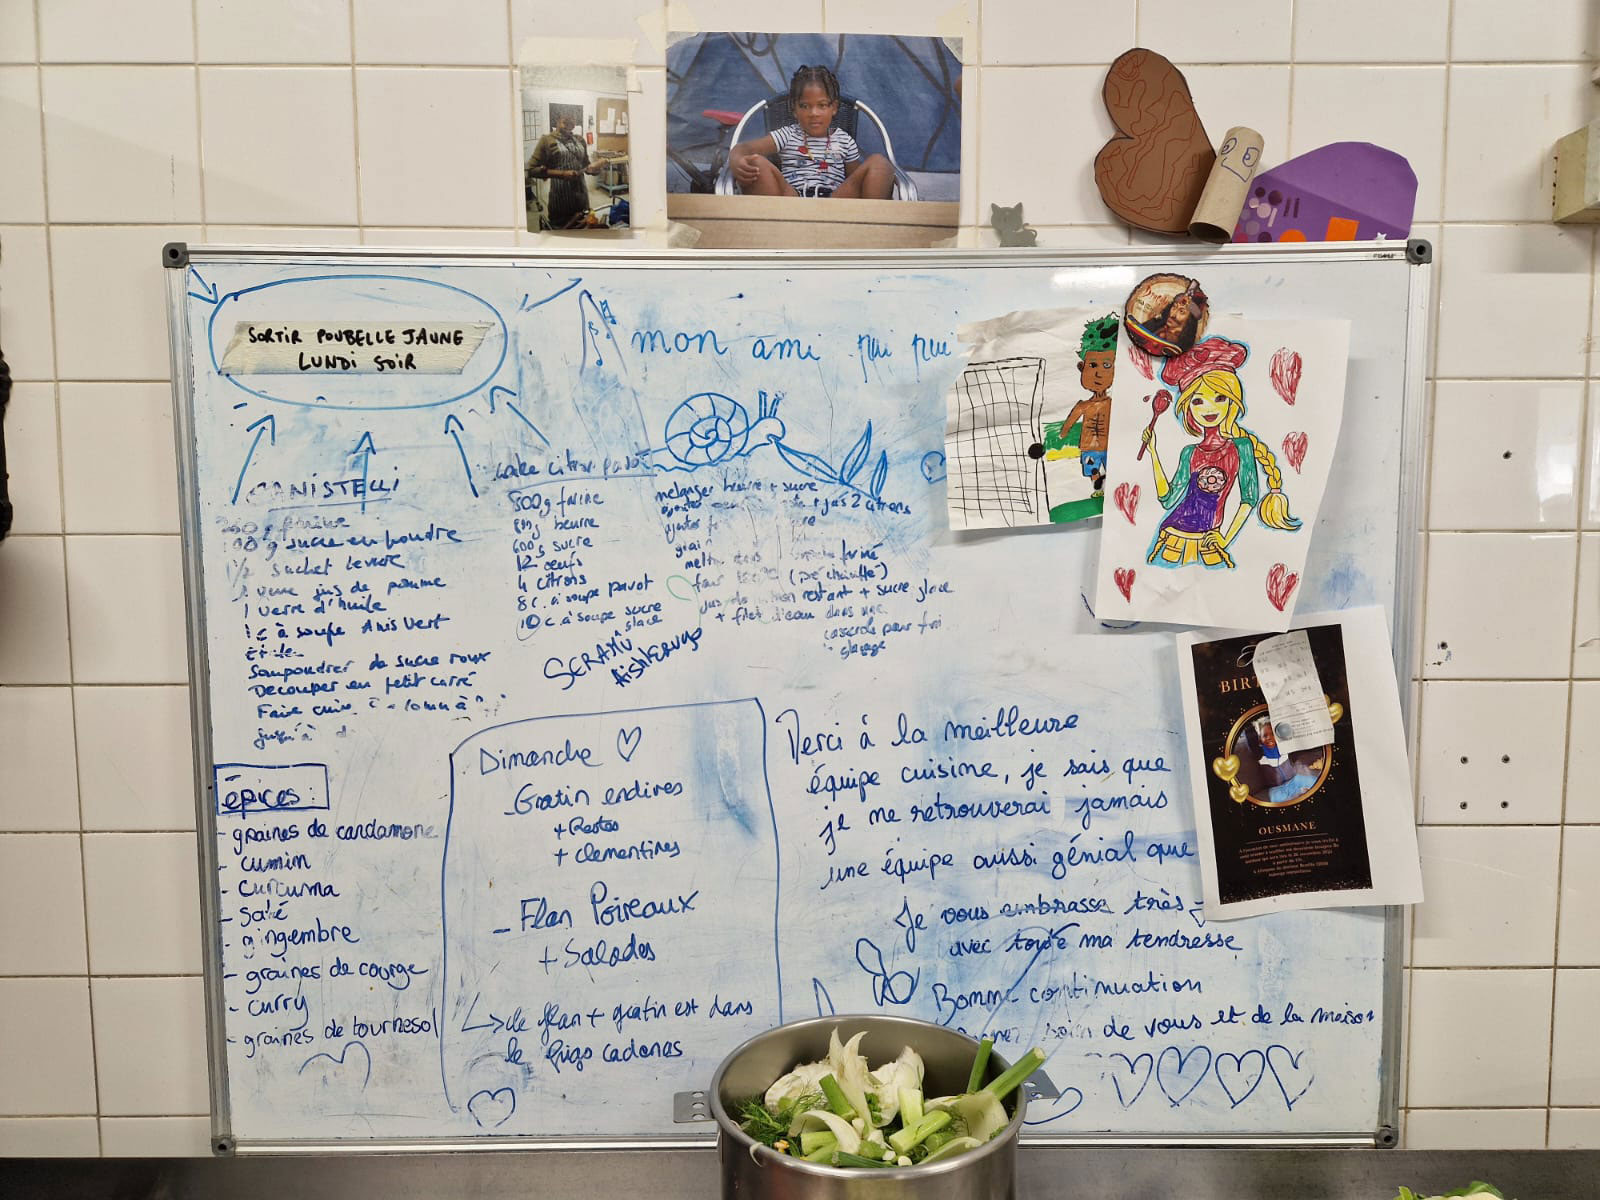 SORTIR POUBELLE JAUNE
LUNDI SOIR
mon ami
CANISTELLI
farine
100g sucre en poudre
1/2 sachet levure
1 verre jus de pomme
1 verre d'huile
1 c à soupe Anis Vert
Saupoudrer de sucre roux
Decouper en petit carré
Faire cuire
jusqu'à
cake citron pavot
500g farine
beurre
600g sucre
12 œufs
4 citrons
8 c. à soupe pavot
10 c. à soupe sucre
glace
melanger beurre + sucre
ajouter + jus 2 citrons
ajouter
grain
mettre dans fariné
four (pré chauffé)
jus de citron restant + sucre glace
+ filet d'eau dans une
casserole pour
glaçage
épices :
- graines de cardamome
- cumin
- curcuma
- saté
- gingembre
- graines de courge
- curry
- graines de tournesol
Dimanche ♡
- Gratin endives
+ Restes
+ clementines
- Flan Poireaux
+ Salades
↳ le flan + gratin est dans
le frigo cadenas
Merci à la meilleure
équipe cuisine, je sais que
je ne retrouverai jamais
une équipe aussi génial que
Je vous embrasse très
avec toute ma tendresse
Bonne continuation
soin de vous et de la maison
OUSMANE